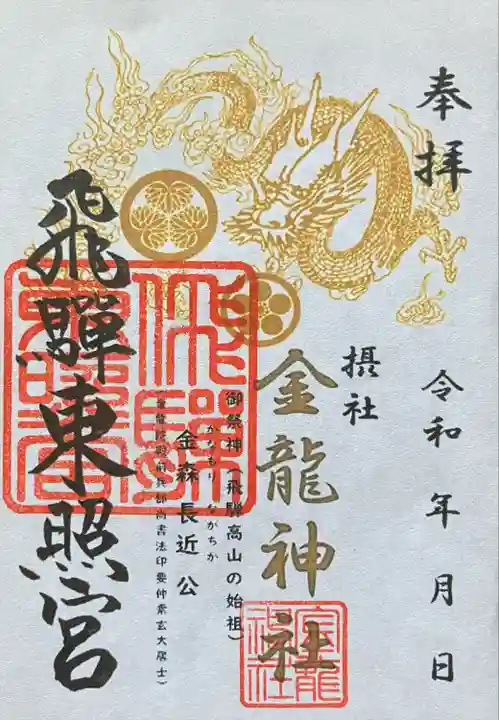 奉拝
令和 年 月 日
摂社
金龍神社
御祭神（飛騨高山の始祖）
かなもり ながちか
金森長近公
飛騨東照宮